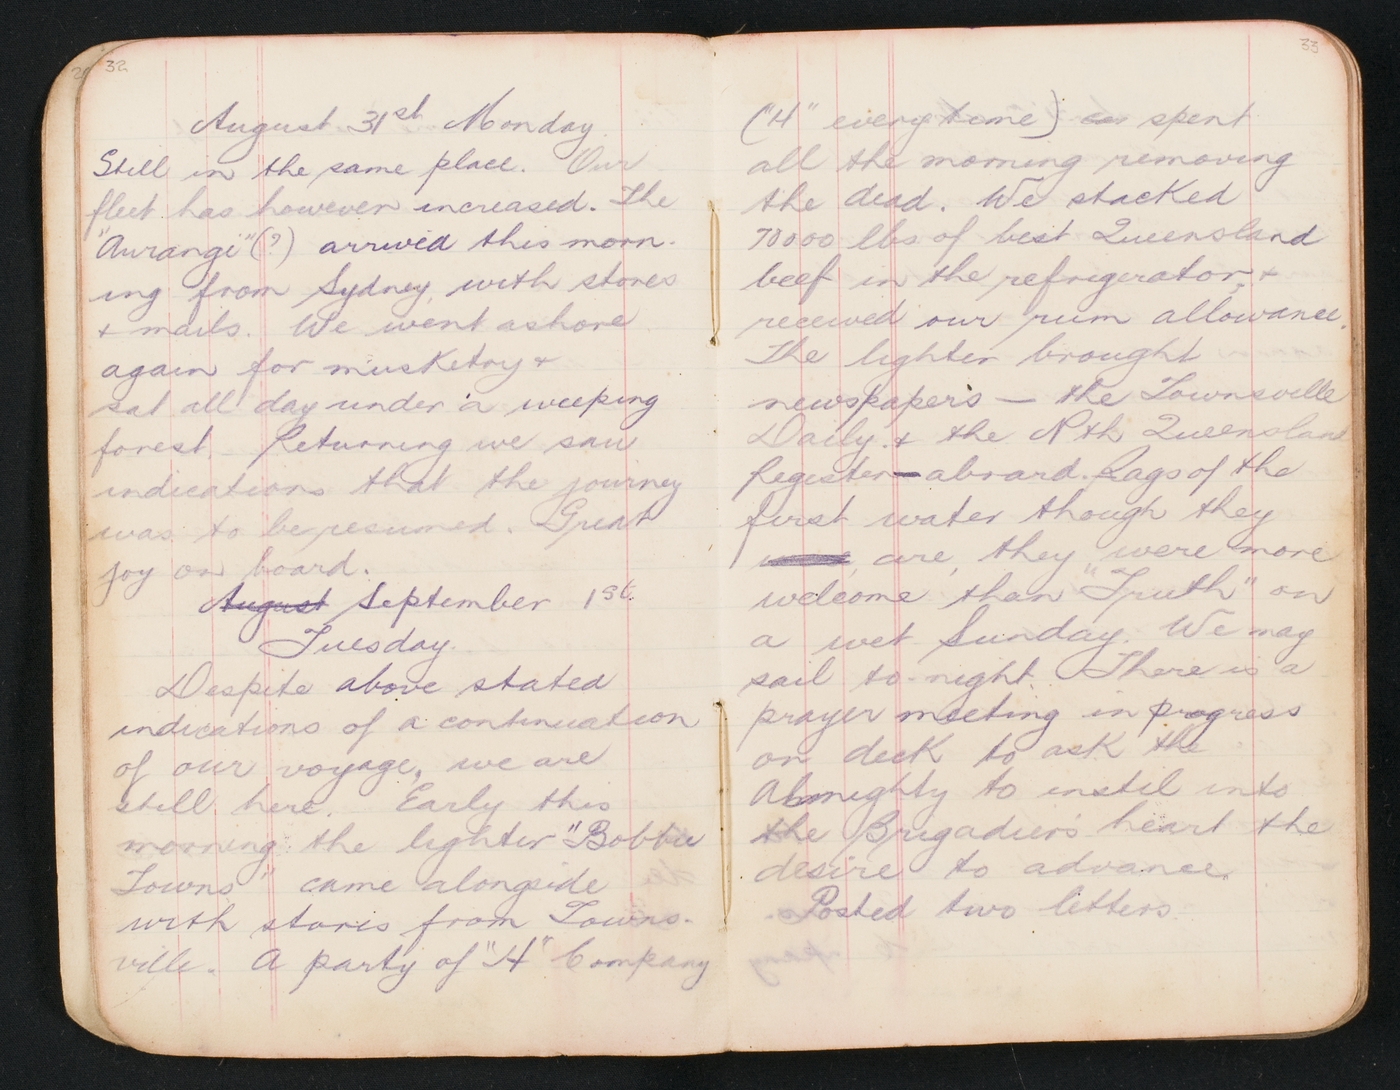 32
August 31st Monday.
Still in the same place. Our
fleet has however increased. The
"Aurangi"(?) arrived this morn-
ing from Sydney, with stores
+ mails. We went ashore
again for musketry +
sat all day under a weeping
forest. Returning we saw
indications that the journey
was to be resumed. Great
joy on board.
August September 1st
Tuesday.
Despite above stated
indications of a continuation
of our voyage, we are
still here. Early this
morning the lighter "Bobbie
Towns" came alongside
with stores from Towns-
ville. A party of "H" Company
33
("H" every time) spent
all the morning removing
the dead. We stacked
70000 lbs of best Queensland
beef in the refrigerator, +
received our rum allowance.
The lighter brought
newspapers — the Townsville
Daily + the Nth Queensland
Register — aboard. Rags of the
first water though they
are, they were more
welcome than "Truth" on
a wet Sunday. We may
sail to-night. There is a
prayer meeting in progress
on deck to ask the
Almighty to instil into
the Brigadier's heart the
desire to advance.
Posted two letters.